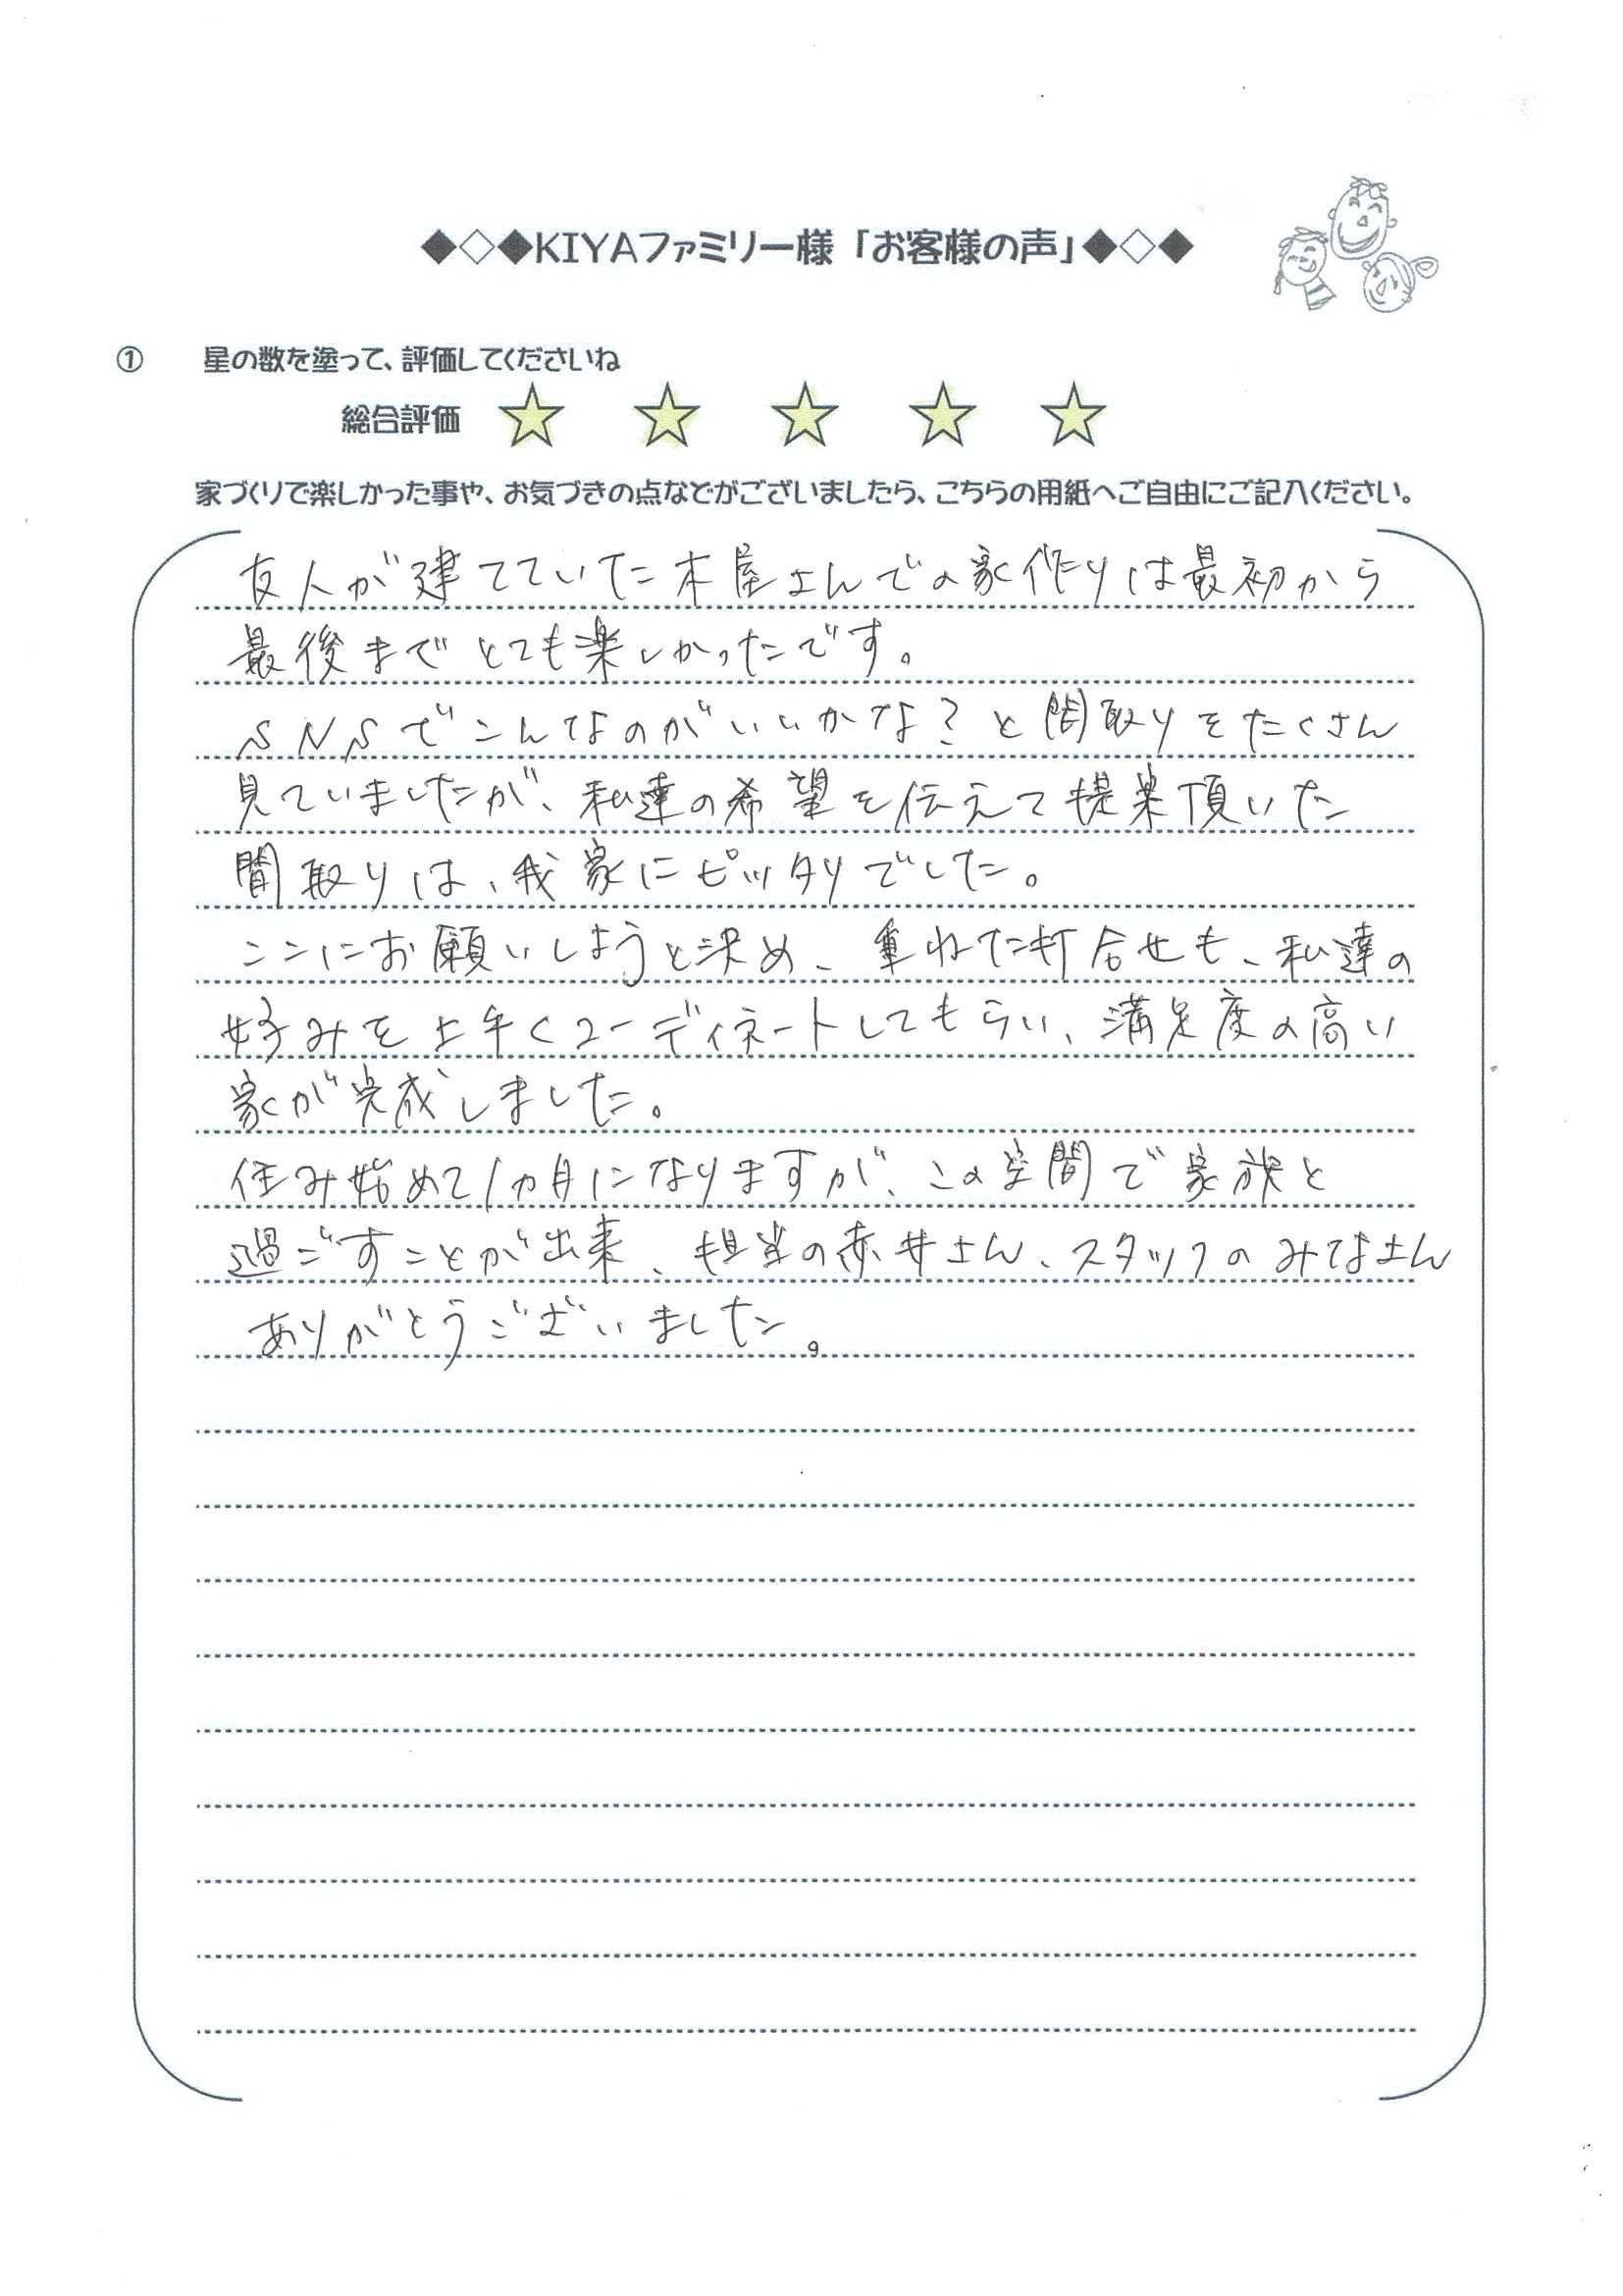 ◆◇◆KIYAファミリー様「お客様の声」◆◇◆
① 星の数を塗って、評価してくださいね
総合評価 ☆ ☆ ☆ ☆ ☆
家づくりで楽しかった事や、お気づきの点などがございましたら、こちらの用紙へご自由にご記入ください。
友人が建てていた木屋さんでの家作りは最初から
最後までとても楽しかったです。
SNSでこんなのがいいかな?と間取りをたくさん
見ていましたが、私達の希望を伝えて提案頂いた
間取りは、我家にピッタリでした。
ここにお願いしようと決め、重ねた打合せも、私達の
好みを上手くコーディネートしてもらい、満足度の高い
家が完成しました。
住み始めて1ヵ月になりますが、この空間で家族と
過ごすことが出来、担当の赤井さん、スタッフのみなさん
ありがとうございました。